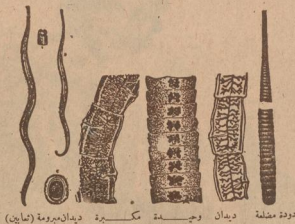 دودة مضلعة ديدان وحيدة مكبرة ديدان مبرومة (ثعابين)